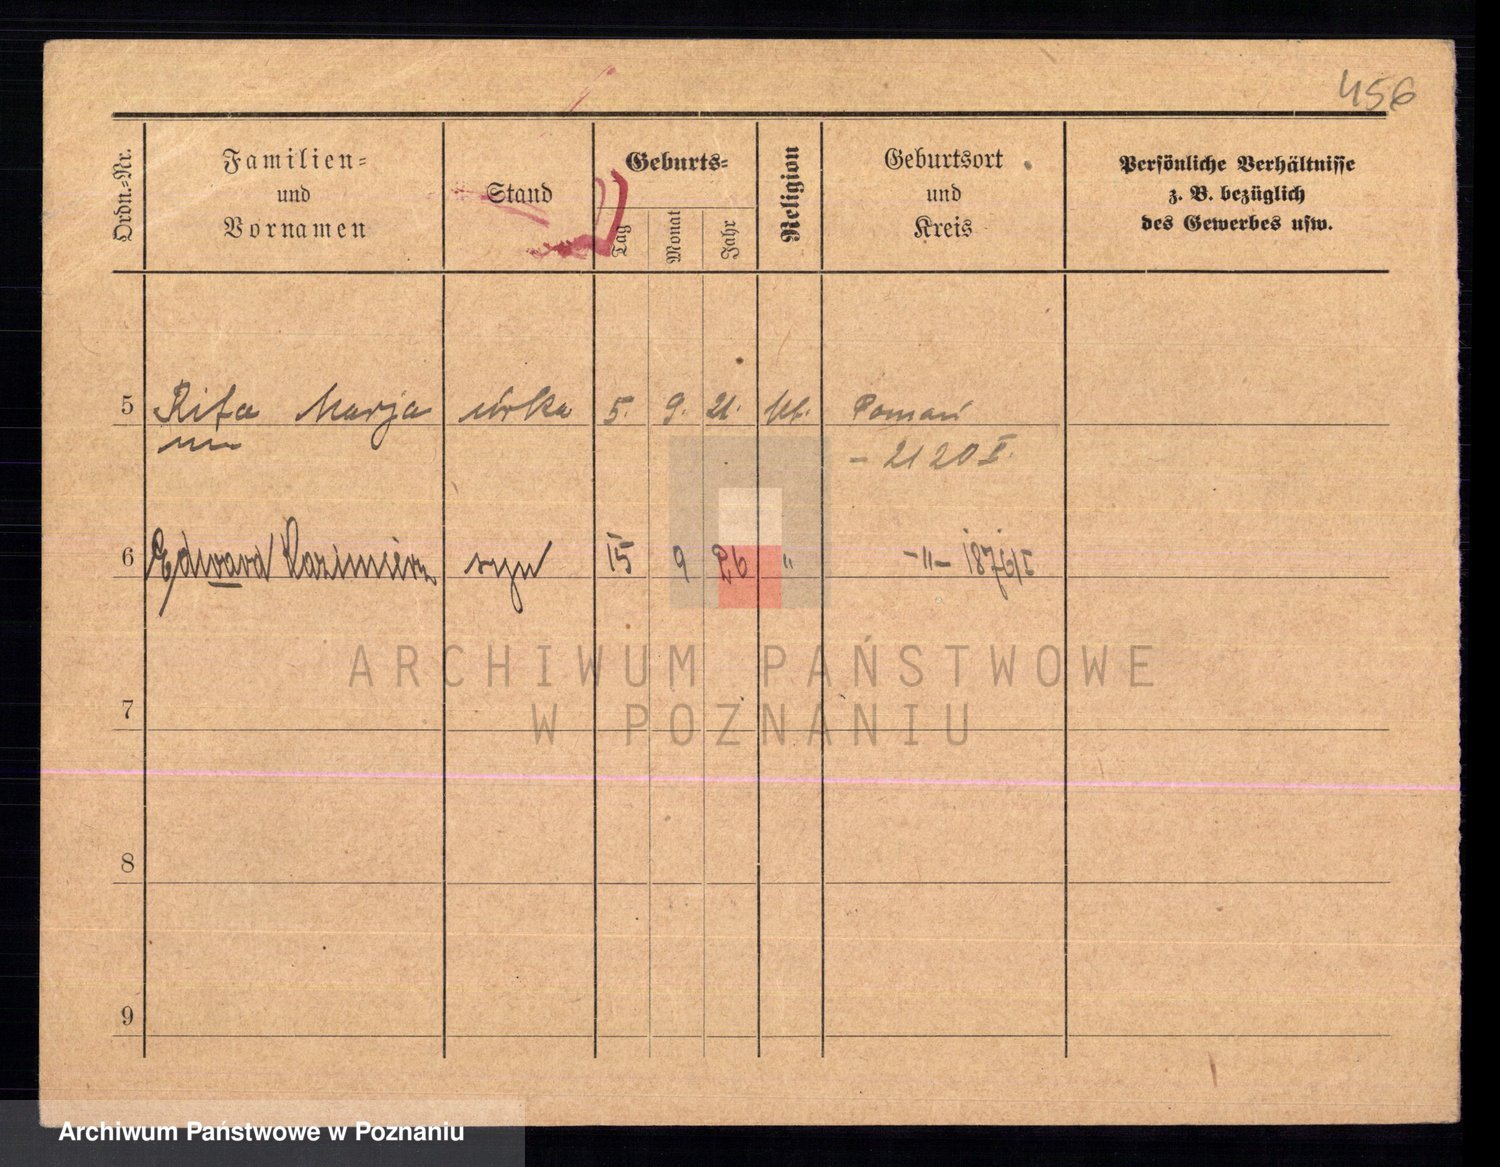 456
Ordn.-Nr. Familien- und Vornamen Stand Geburts- Tag Monat Jahr Religion Geburtsort und Kreis Persönliche Verhältnisse z. B. bezüglich des Gewerbes usw.
5 Rita Marja córka 5. 9. 21. kt. Poznań
- 2120 I.
6 Edward Kazimierz syn 15 9 26 " -"- 1876/I
ARCHIWUM PAŃSTWOWE
W POZNANIU
7
8
9
Archiwum Państwowe w Poznaniu